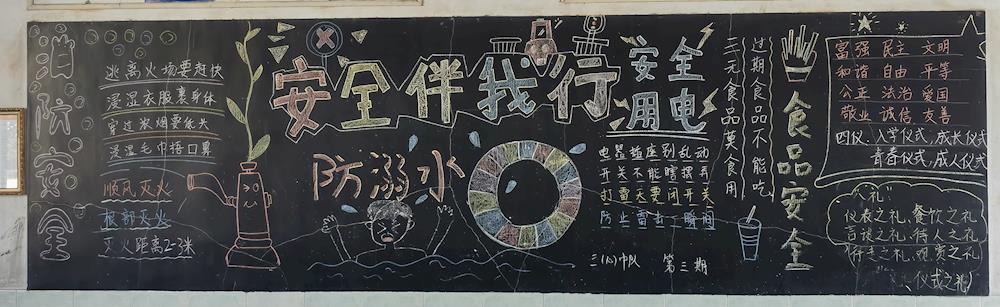 消防安全
逃离火场要赶快
浸湿衣服裹身体
穿过浓烟要低头
浸湿毛巾捂口鼻
顺风灭火
根部灭火
灭火距离2-3米
安全伴我行
防溺水
安全
用电
电器插座别乱动
开关不能瞎摆弄
打雷天要闭开关
防止雷击一瞬间
三(八)中队 第三期
过期食品不能吃
三无食品莫食用
食品安全
富强 民主 文明
和谐 自由 平等
公正 法治 爱国
敬业 诚信 友善
四仪:入学仪式,成长仪式
青春仪式,成人仪式
"礼"
仪表之礼、餐饮之礼
言谈之礼、待人之礼
行走之礼、观赏之礼
仪式之礼